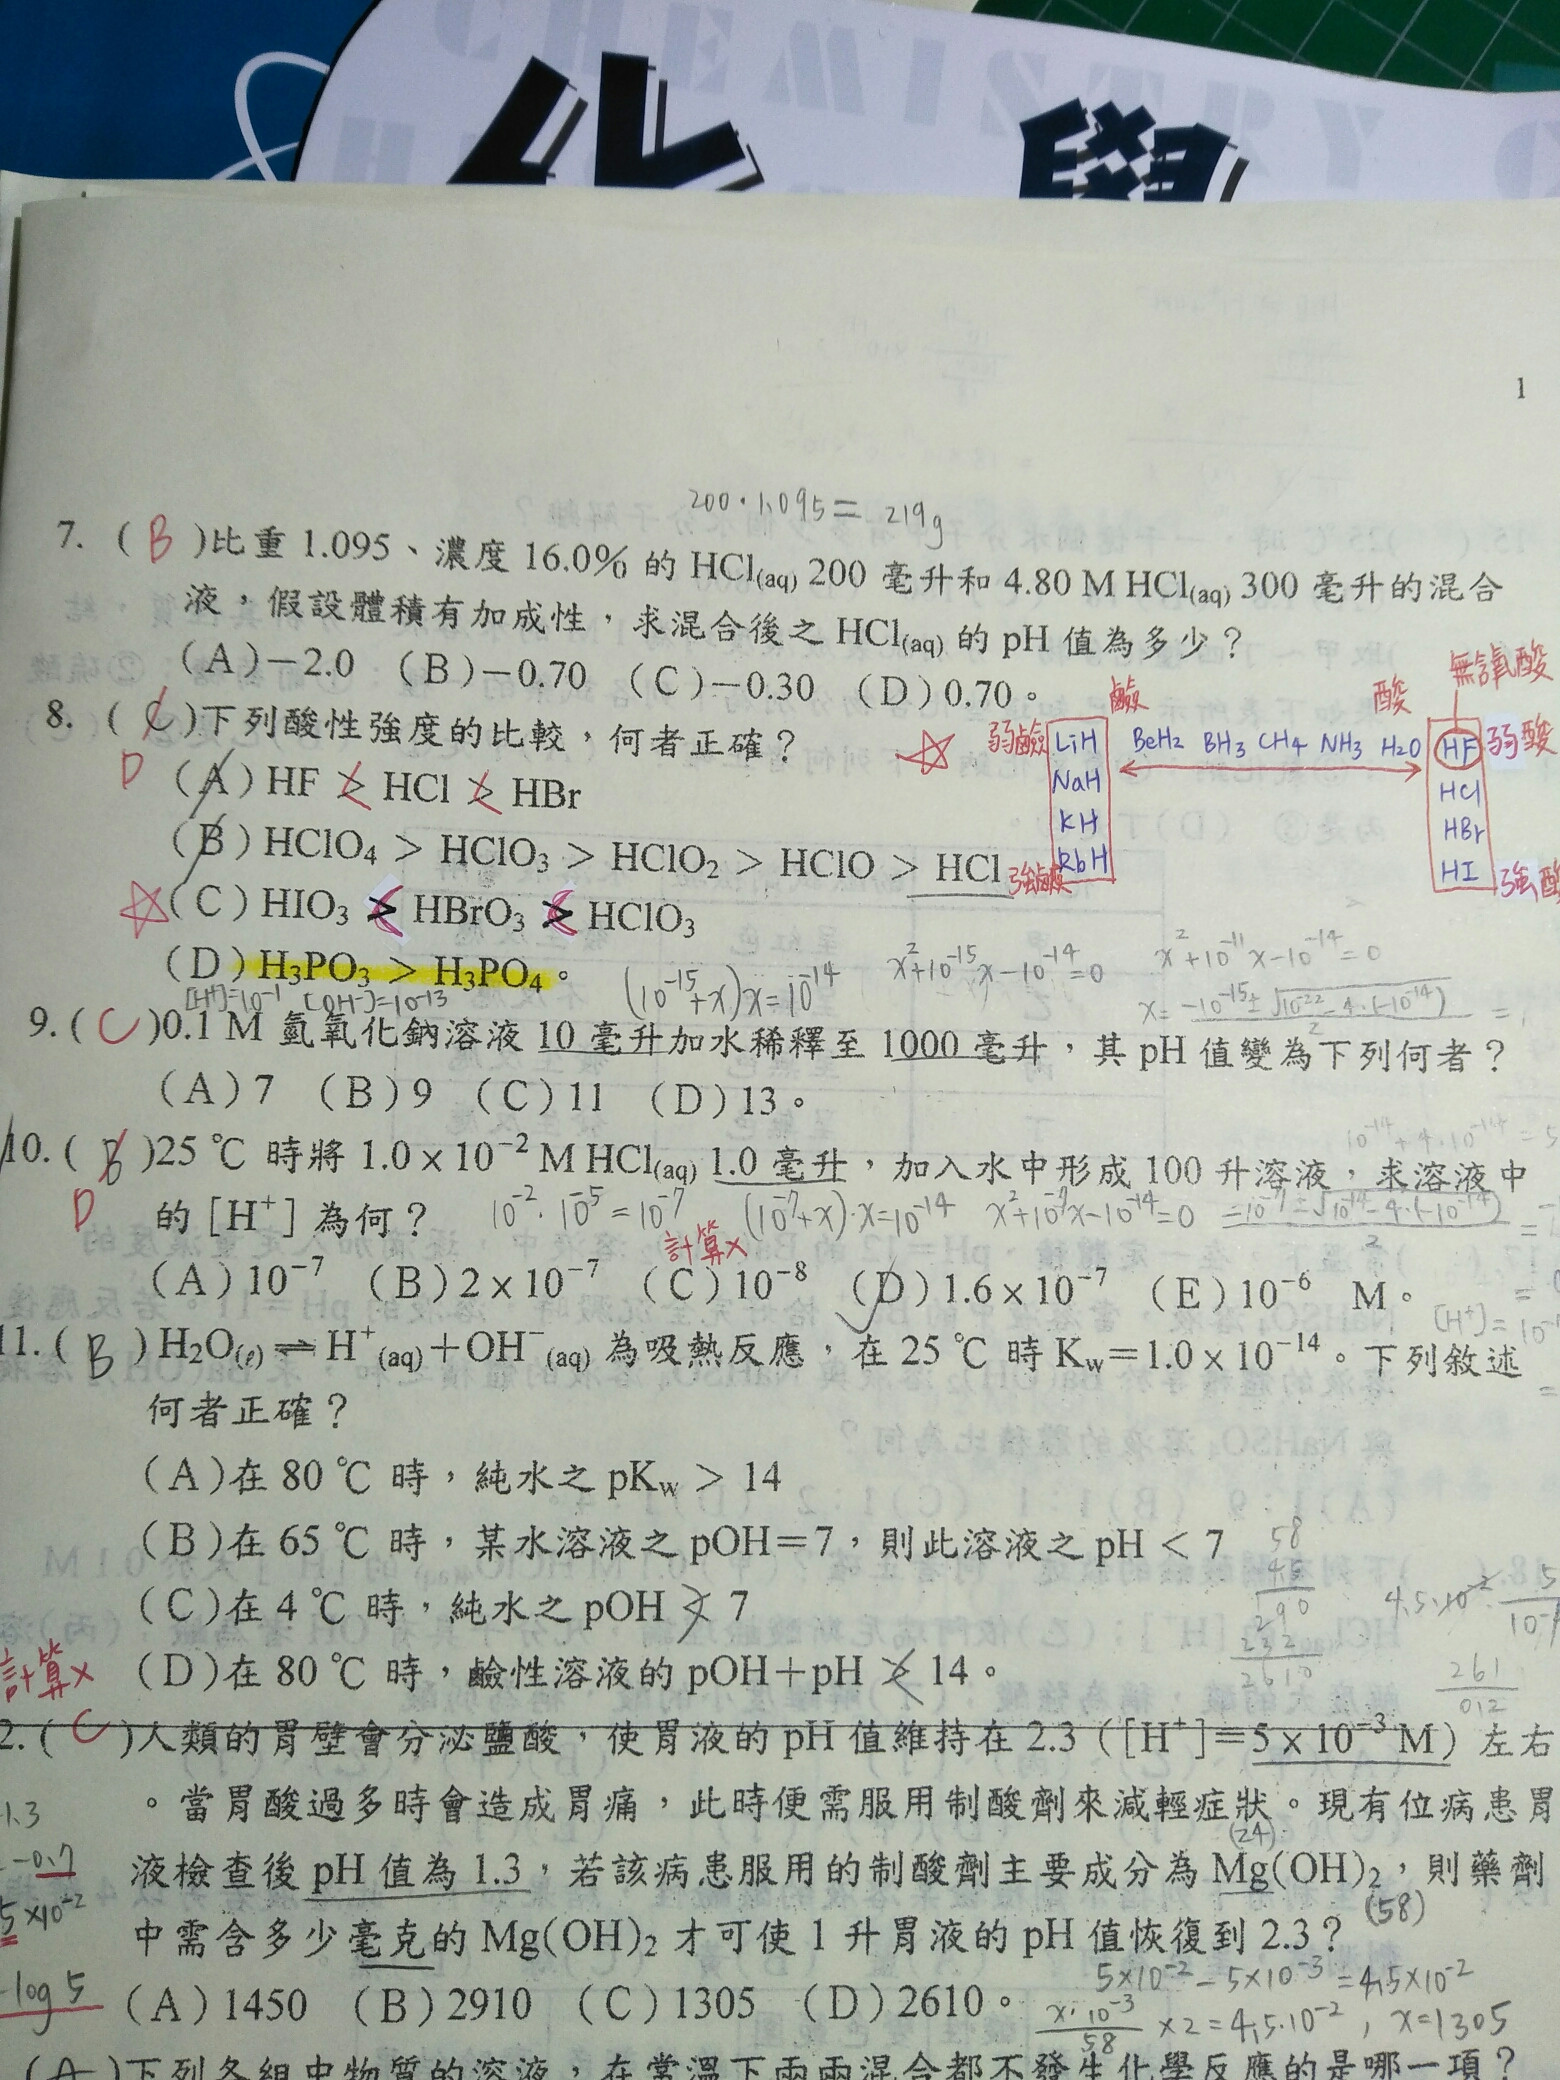 化 學
1
200·1.095= 219g
7. ( B )比重 1.095、濃度 16.0% 的 HCl(aq) 200 毫升和 4.80 M HCl(aq) 300 毫升的混合
液,假設體積有加成性,求混合後之 HCl(aq) 的 pH 值為多少?
(A)−2.0 (B)−0.70 (C)−0.30 (D)0.70。
8. ( C )下列酸性強度的比較,何者正確?
D
(A) HF > HCl > HBr
(B) HClO₄ > HClO₃ > HClO₂ > HClO > HCl
(C) HIO₃ > HBrO₃ > HClO₃
(D) H₃PO₃ > H₃PO₄。
無氧酸
鹼 酸
弱鹼 LiH BeH₂ BH₃ CH₄ NH₃ H₂O HF 弱酸
NaH HCl
KH HBr
強鹼 RbH HI 強酸
[H⁺]=10⁻¹ [OH⁻]=10⁻¹³
(10⁻¹⁵+x)x=10⁻¹⁴ x²+10⁻¹⁵x−10⁻¹⁴=0 x²+10⁻¹¹x−10⁻¹⁴=0
9. ( C )0.1 M 氫氧化鈉溶液 10 毫升加水稀釋至 1000 毫升,其 pH 值變為下列何者?
(A)7 (B)9 (C)11 (D)13。
10. ( B )25 ℃ 時將 1.0×10⁻² M HCl(aq) 1.0 毫升,加入水中形成 100 升溶液,求溶液中
D
的 [H⁺] 為何? 10⁻²·10⁻⁵=10⁻⁷ (10⁻⁷+x)·x=10⁻¹⁴ x²+10⁻⁷x−10⁻¹⁴=0
計算x
(A)10⁻⁷ (B)2×10⁻⁷ (C)10⁻⁸ (D)1.6×10⁻⁷ (E)10⁻⁶ M。
11. ( B )H₂O(ℓ)⇌H⁺(aq)+OH⁻(aq) 為吸熱反應,在 25 ℃ 時 Kw=1.0×10⁻¹⁴。下列敘述
何者正確?
(A)在 80 ℃ 時,純水之 pKw > 14
(B)在 65 ℃ 時,某水溶液之 pOH=7,則此溶液之 pH < 7
(C)在 4 ℃ 時,純水之 pOH < 7
(D)在 80 ℃ 時,鹼性溶液的 pOH+pH > 14。
58
45
290
232
2610
261
012
計算x
2. ( C )人類的胃壁會分泌鹽酸,使胃液的 pH 值維持在 2.3 ([H⁺]=5×10⁻³ M) 左右
。當胃酸過多時會造成胃痛,此時便需服用制酸劑來減輕症狀。現有位病患胃
(24)
液檢查後 pH 值為 1.3,若該病患服用的制酸劑主要成分為 Mg(OH)₂,則藥劑
(58)
中需含多少毫克的 Mg(OH)₂ 才可使 1 升胃液的 pH 值恢復到 2.3?
1.3
-0.7
5×10⁻²
-log 5
5×10⁻²−5×10⁻³=4.5×10⁻²
(A)1450 (B)2910 (C)1305 (D)2610。
x·10⁻³/58 ×2=4.5·10⁻², x=1305
(A )下列各組中物質的溶液,在常溫下兩兩混合都不發生化學反應的是哪一項?